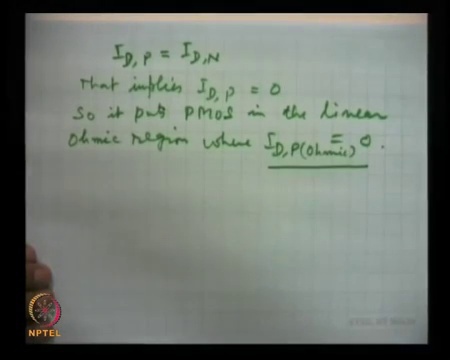 I_D,P = I_D,N
That implies I_D,P = 0
So it puts PMOS in the linear
Ohmic region where I_D,P(Ohmic) = 0.
NPTEL